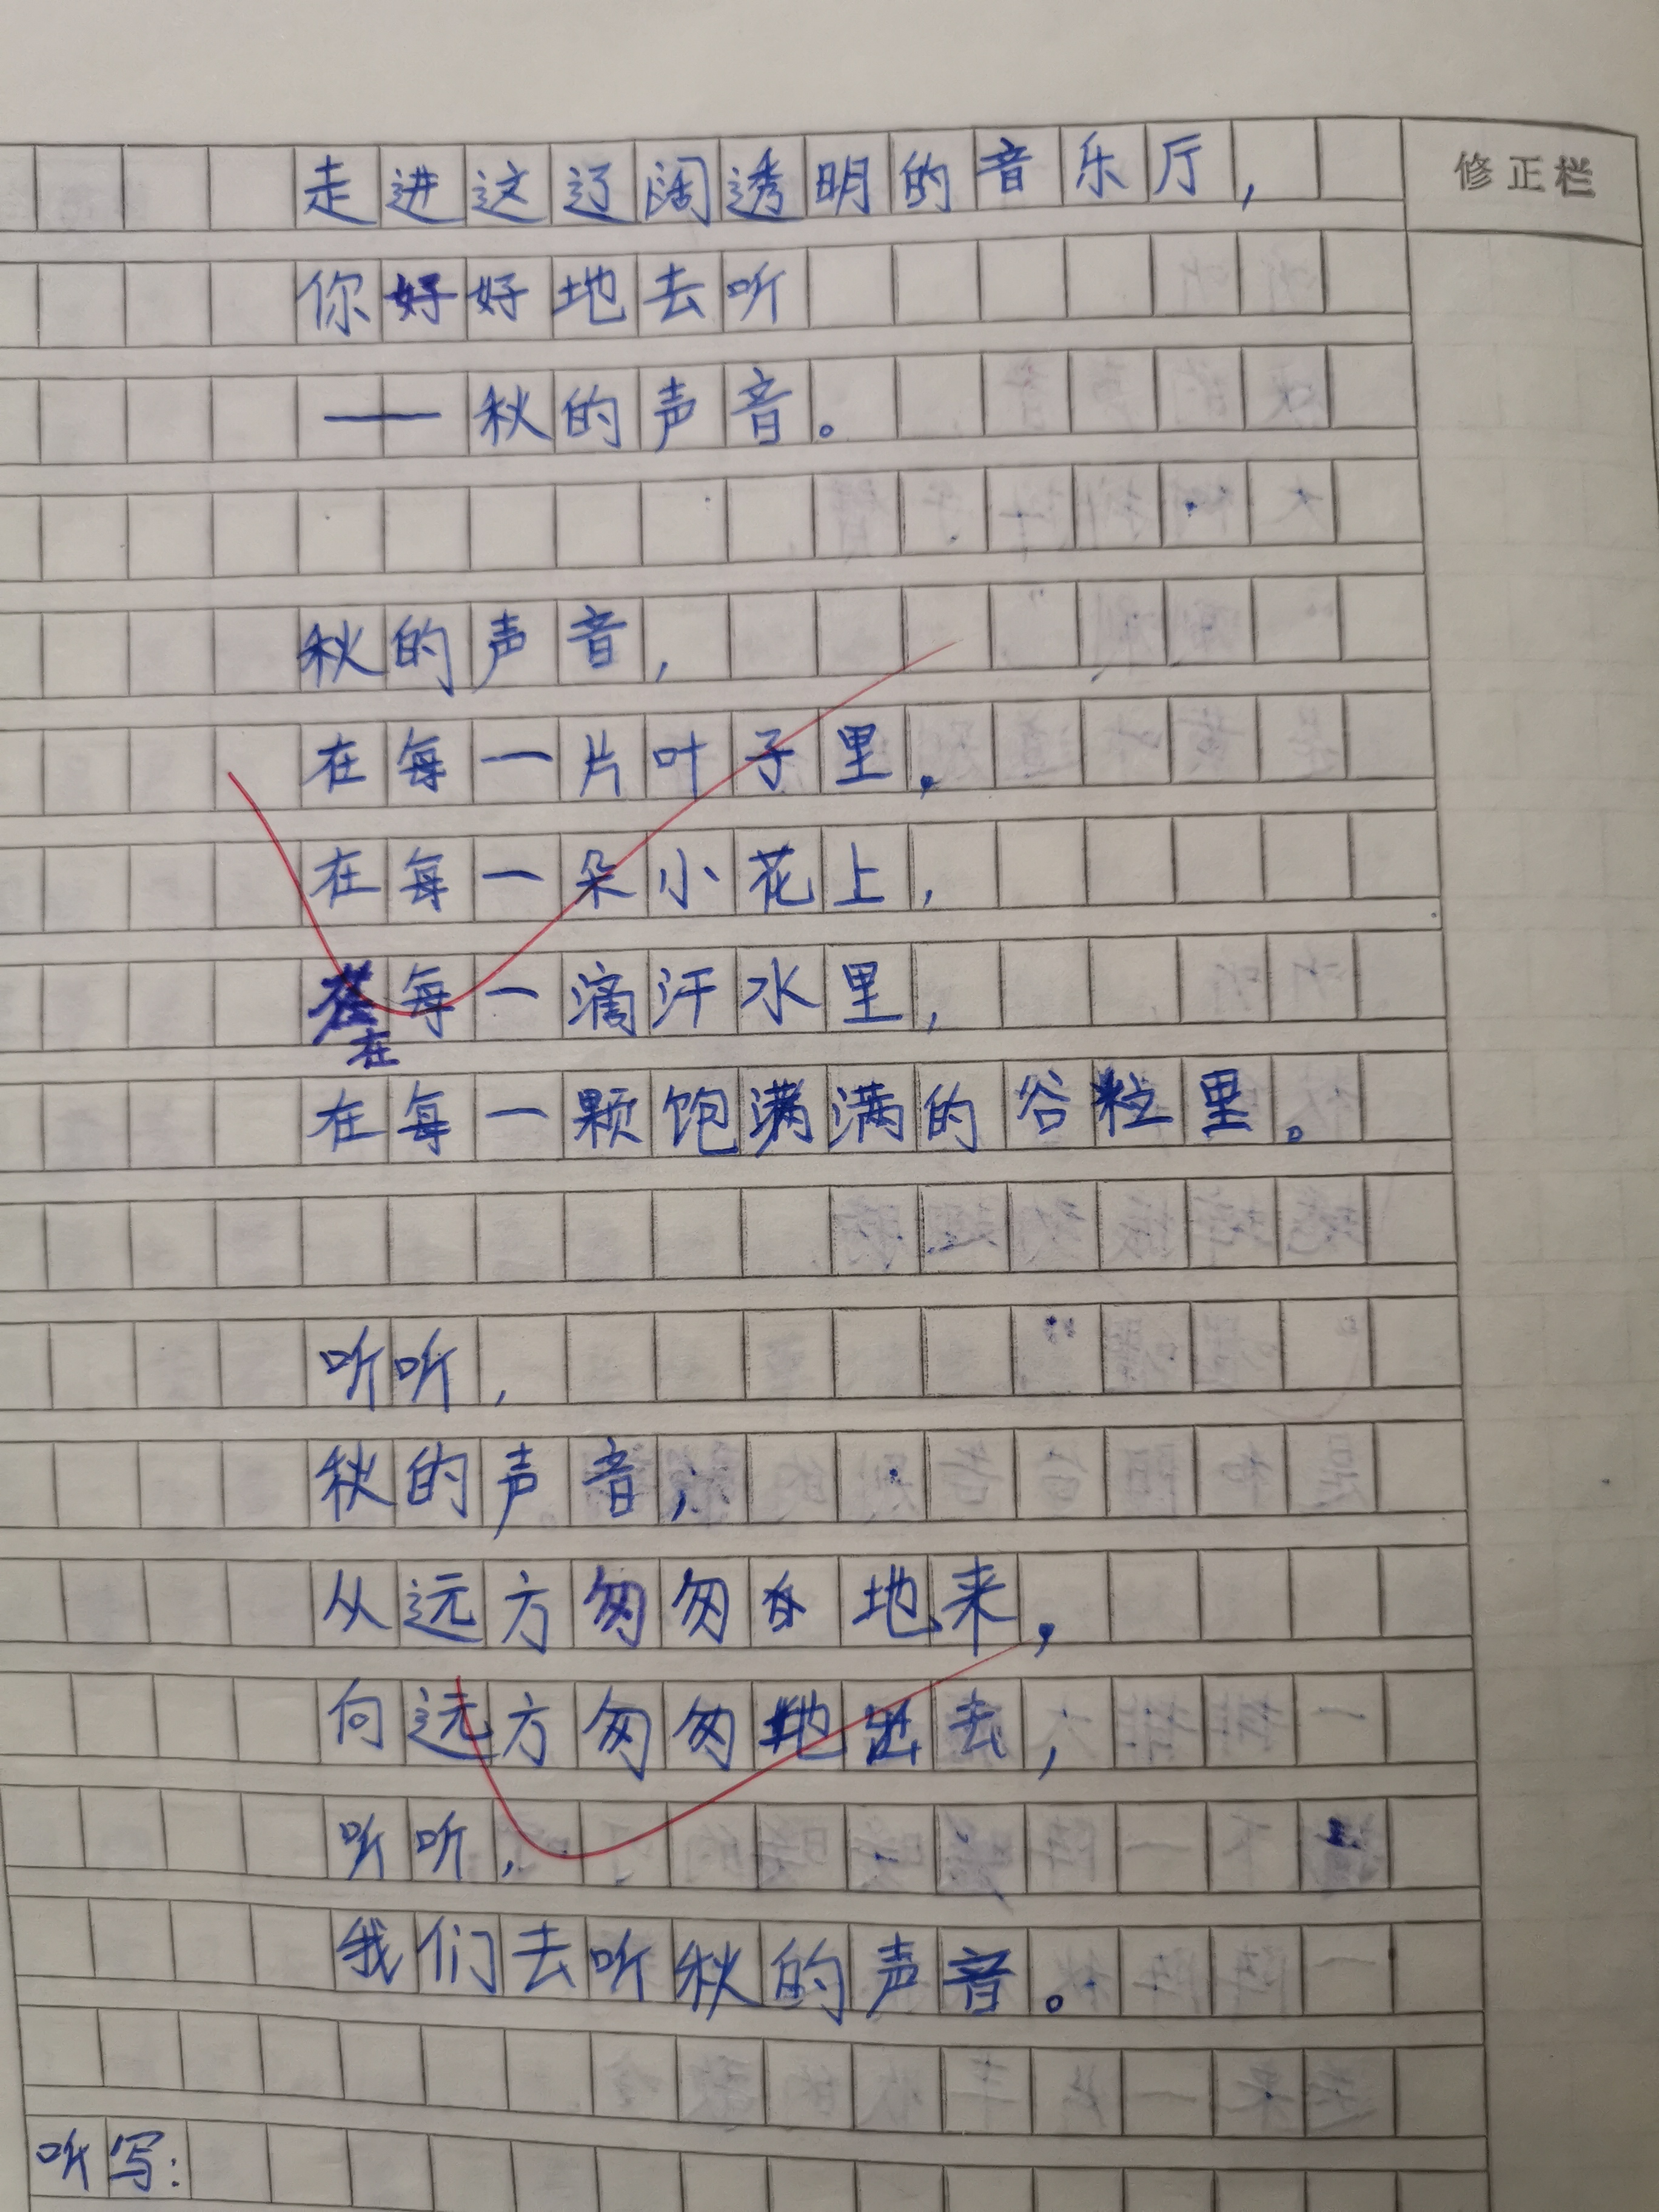 修正栏
走进这辽阔透明的音乐厅，
你好好地去听
——秋的声音。
秋的声音，
在每一片叶子里，
在每一朵小花上，
在每一滴汗水里，
在每一颗饱满满的谷粒里。
听听，
秋的声音，
从远方匆匆地来，
向远方匆匆地去，
听听，
我们去听秋的声音。
听写：